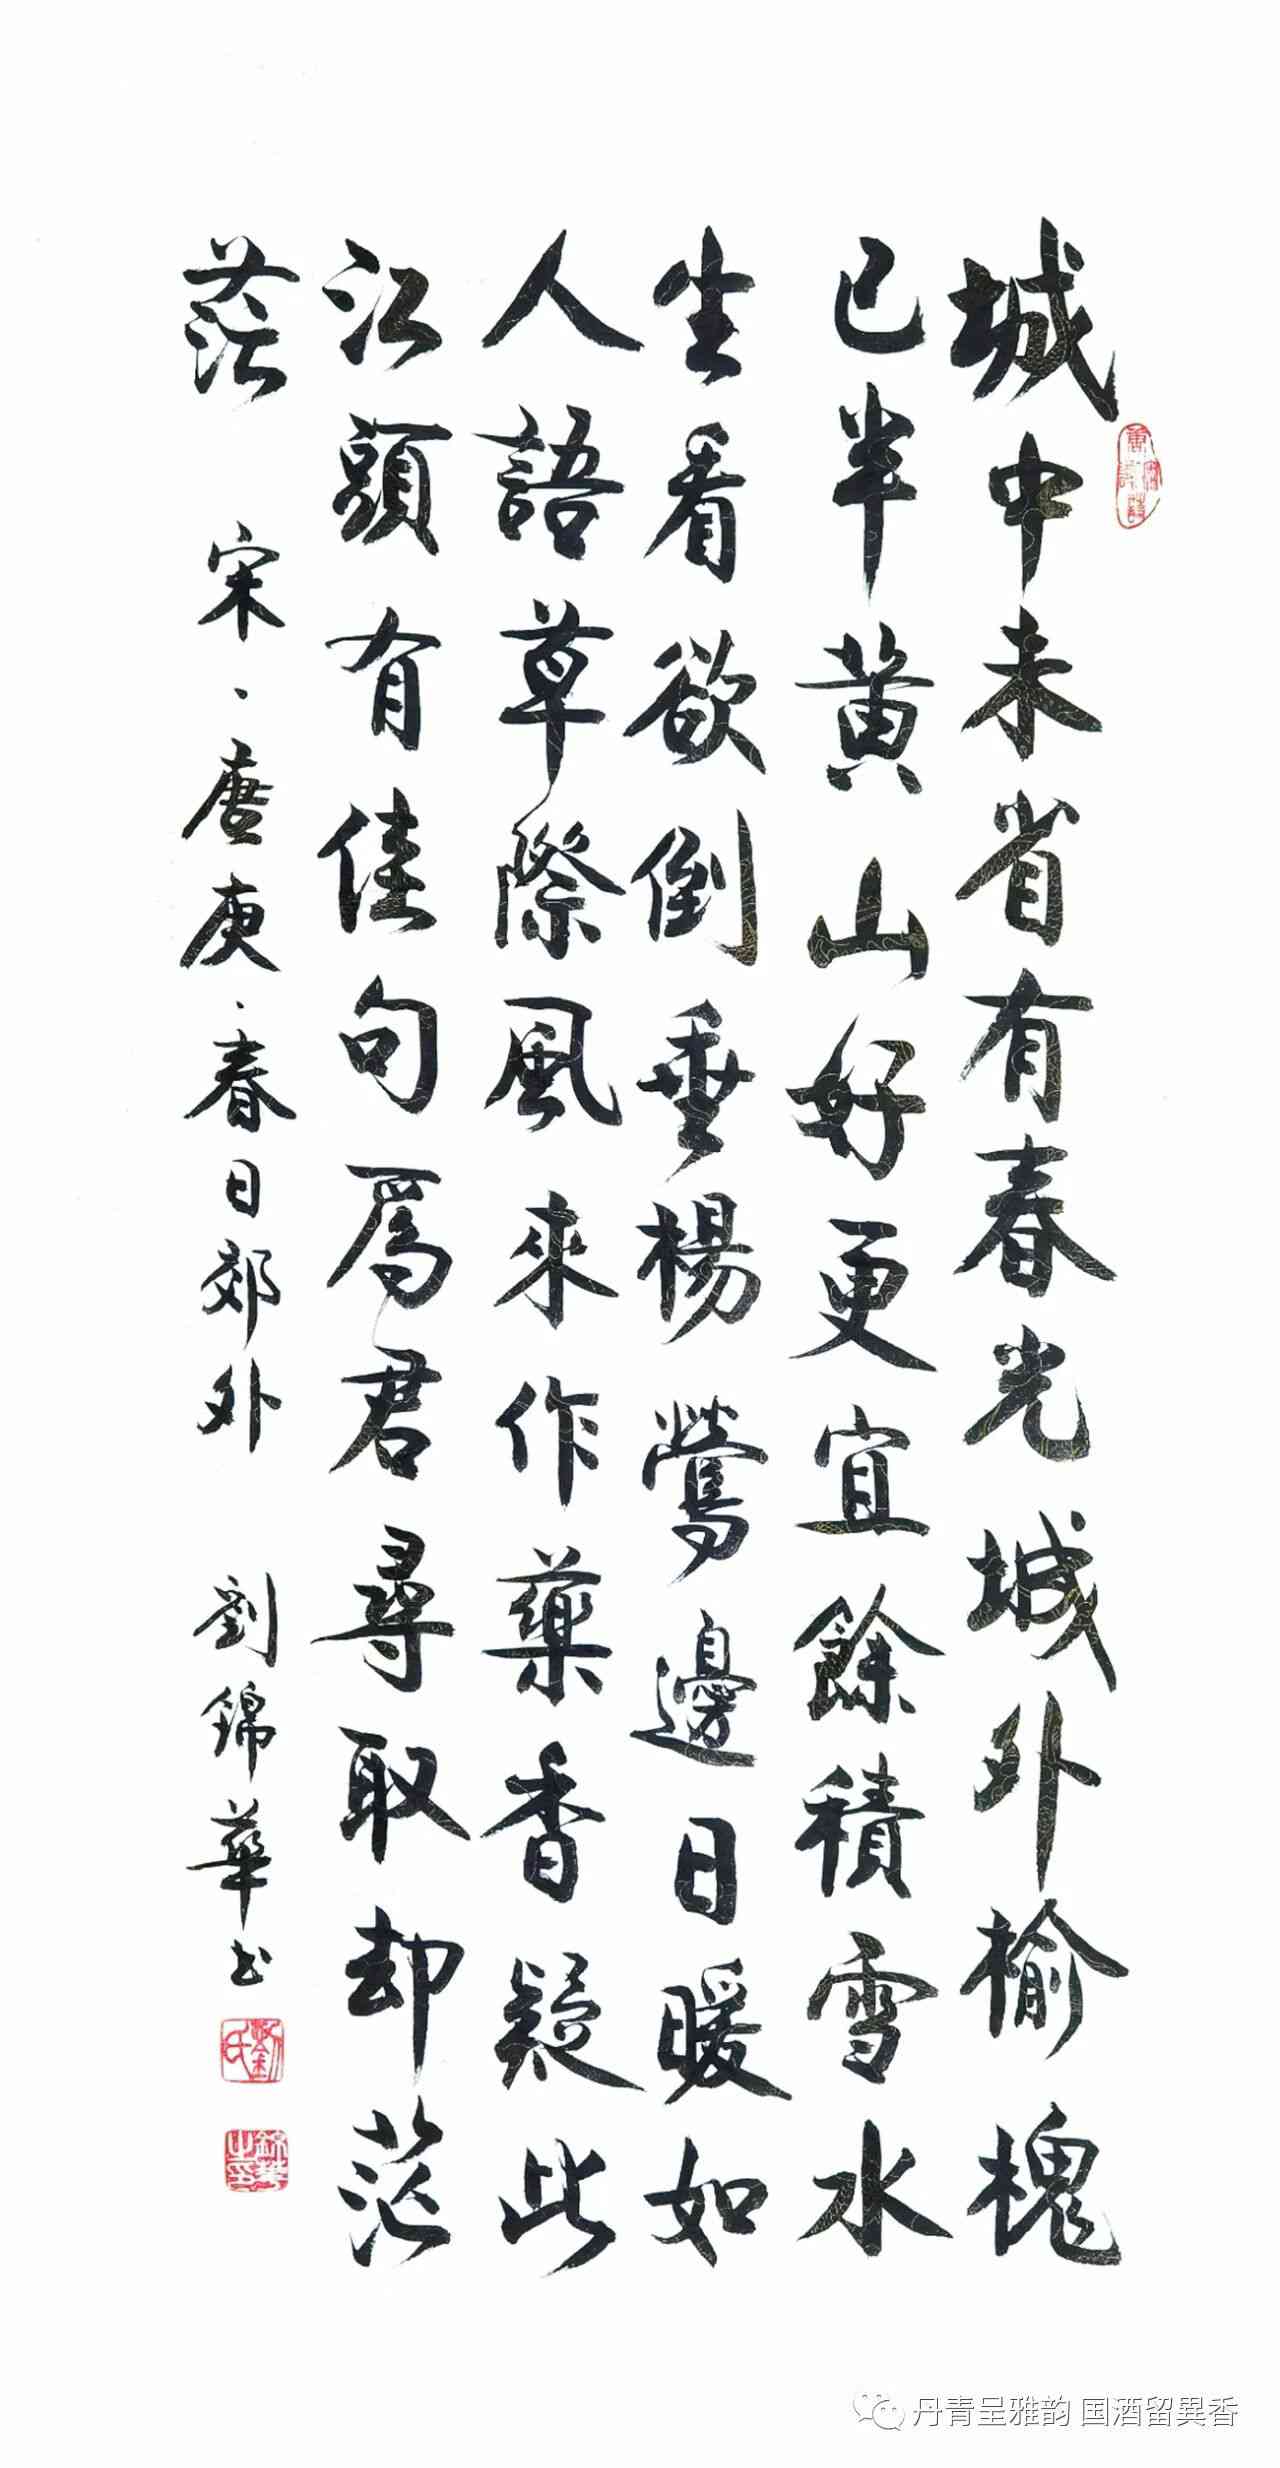 城中未省有春光城外榆槐
已半黄山好更宜餘積雪水
生看欲倒垂楊鶯邊日暖如
人語草際風來作藥香疑此
江頭有佳句為君尋取却茫
茫 宋、唐庚、春日郊外 劉錦華书
劉氏
錦華之印
丹青呈雅韵 国酒留異香